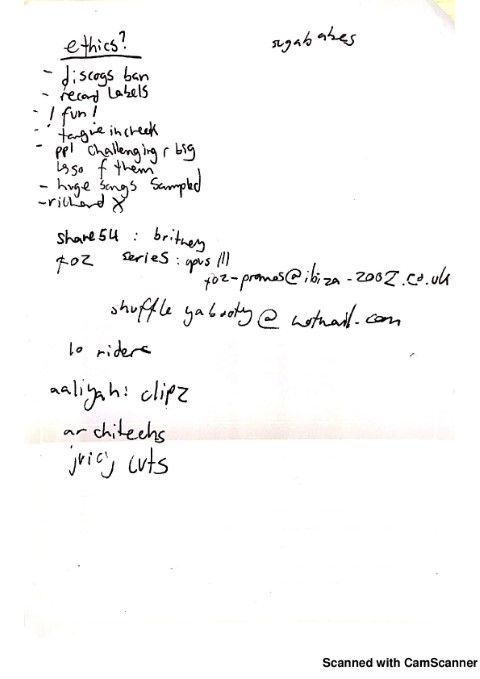 ethics?
sugababes
- discogs ban
- record labels
- ! fun !
- tongue in cheek
- ppl challenging r big
f them
- huge songs sampled
- richard X
share54 : britney
foz series : opus III
foz-promos@ibiza-2002.co.uk
shuffle yabooty@hotmail.com
lo riders
aaliyah: clipz
architechs
juicy cuts
Scanned with CamScanner